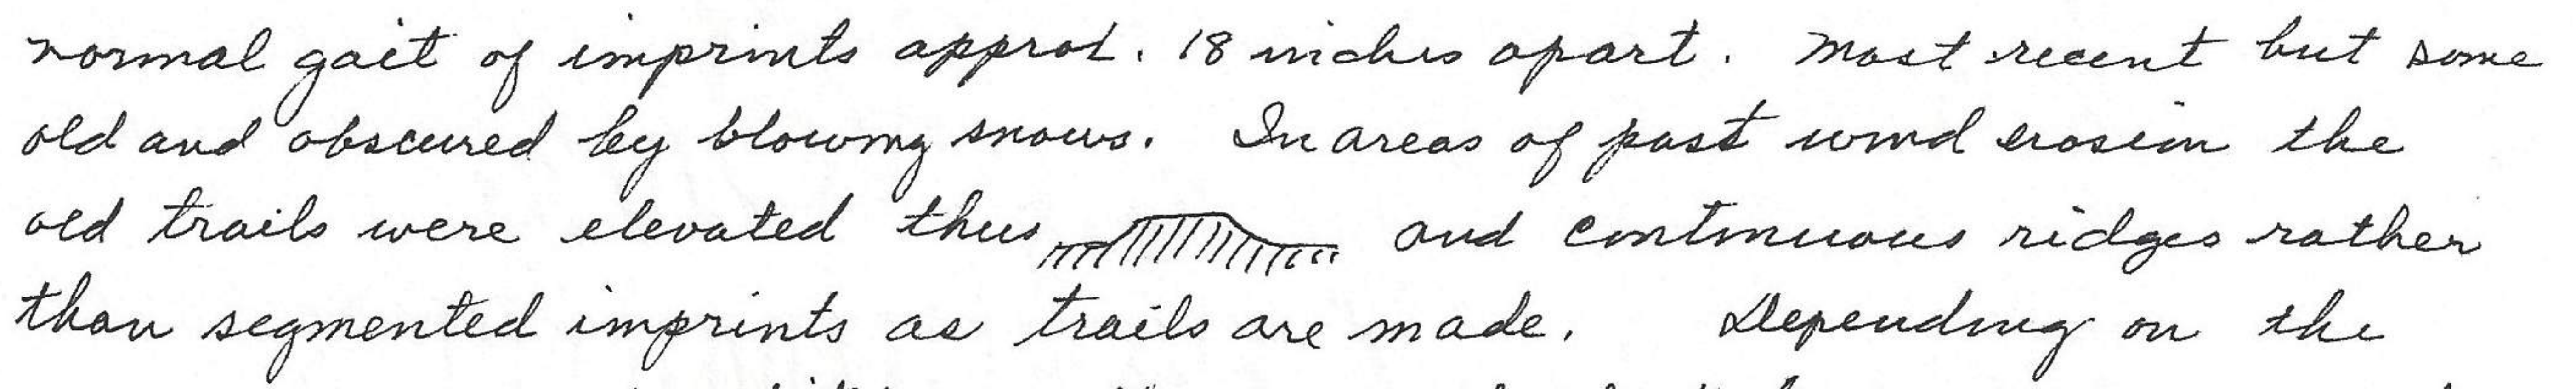 normal gait of imprints approx. 18 inches apart. Most recent but some
old and obscured by blowing snows. In areas of past wind erosion the
old trails were elevated thus and continuous ridges rather
than segmented imprints as trails are made. Depending on the